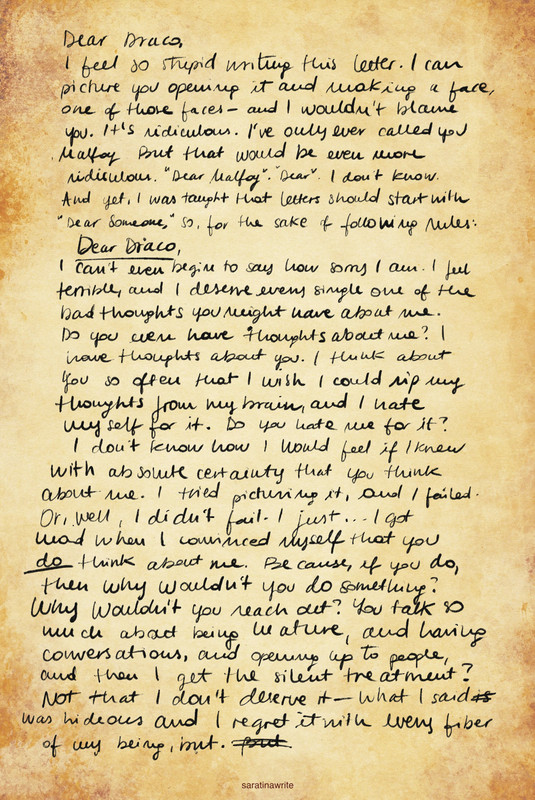 Dear Draco,
I feel so stupid writing this letter. I can
picture you opening it and making a face,
one of those faces – and I wouldn't blame
you. It's ridiculous. I've only ever called you
Malfoy But that would be even more
ridiculous. "Dear Malfoy". "Dear". I don't know.
And yet, I was taught that letters should start with
"Dear Someone," so, for the sake of following rules:
Dear Draco,
I can't even begin to say how sorry I am. I feel
terrible, and I deserve every single one of the
bad thoughts you might have about me.
Do you even have thoughts about me? I
have thoughts about you. I think about
you so often that I wish I could rip my
thoughts from my brain, and I hate
myself for it. Do you hate me for it?
I don't know how I would feel if I knew
with absolute certainty that you think
about me. I tried picturing it, and I failed.
Or, well, I didn't fail. I just... I got
mad when I convinced myself that you
do think about me. Because, if you do,
then why wouldn't you do something?
Why wouldn't you reach out? You talk so
much about being mature, and having
conversations, and opening up to people,
and then I get the silent treatment?
Not that I don't deserve it – what I said is
was hideous and I regret it with every fiber
of my being, but. but.
saratinawrite